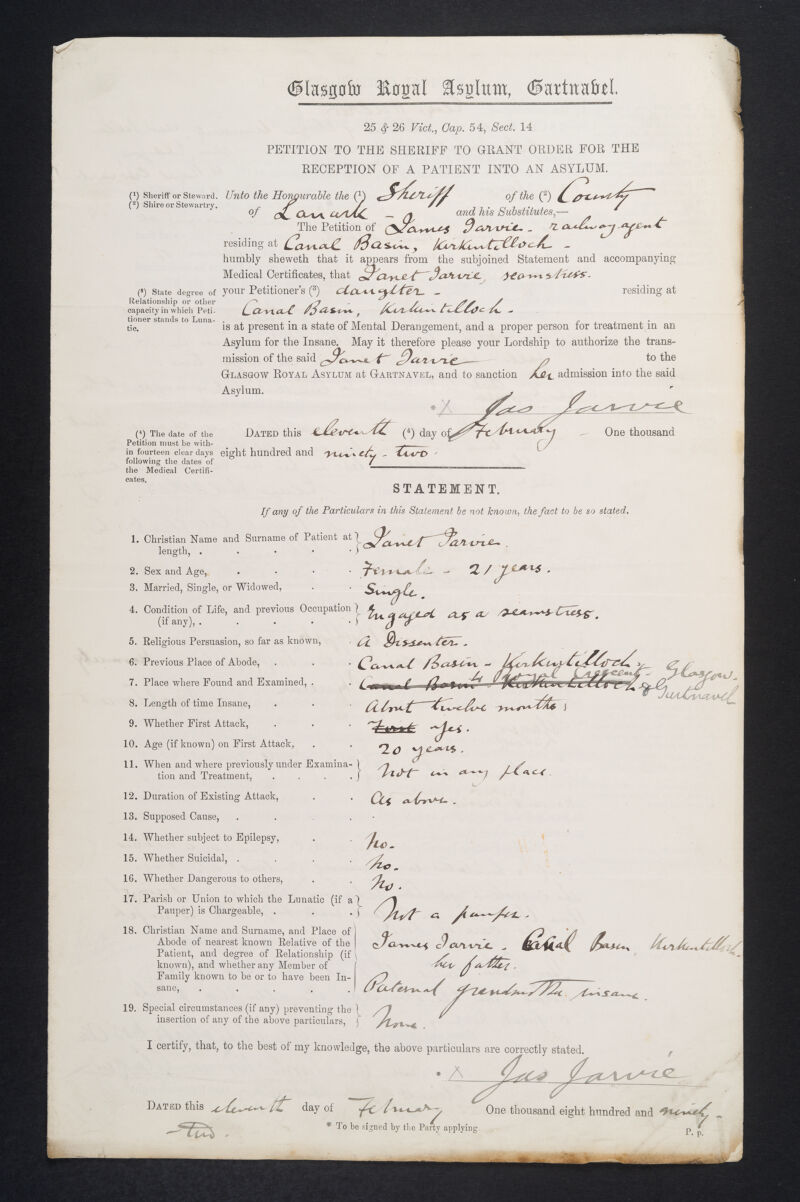 Glasgow Royal Asylum, Gartnavel.
25 & 26 Vict., Cap. 54, Sect. 14
PETITION TO THE SHERIFF TO GRANT ORDER FOR THE
RECEPTION OF A PATIENT INTO AN ASYLUM.
(¹) Sheriff or Steward.
(²) Shire or Stewartry.
Unto the Honourable the (¹) Sheriff of the (²) County
of Lanark - and his Substitutes,—
The Petition of James Jarvie - railway agent
residing at Canal Basin, Kirkintilloch -
humbly sheweth that it appears from the subjoined Statement and accompanying
Medical Certificates, that Janet Jarvie, seamstress.
(³) State degree of
Relationship or other
capacity in which Peti-
tioner stands to Luna-
tic.
your Petitioner's (³) daughter - residing at
Canal Basin, Kirkintilloch -
is at present in a state of Mental Derangement, and a proper person for treatment in an
Asylum for the Insane. May it therefore please your Lordship to authorize the trans-
mission of the said Janet Jarvie to the
GLASGOW ROYAL ASYLUM at GARTNAVEL, and to sanction her admission into the said
Asylum.
* X Jas Jarvie
(⁴) The date of the
Petition must be with-
in fourteen clear days
following the dates of
the Medical Certifi-
cates.
DATED this eleventh (⁴) day of February - One thousand
eight hundred and ninety-two.
STATEMENT.
If any of the Particulars in this Statement be not known, the fact to be so stated.
1. Christian Name and Surname of Patient at
length, . . . . . Janet Jarvie.
2. Sex and Age, . . . . Female - 21 years.
3. Married, Single, or Widowed, . . Single.
4. Condition of Life, and previous Occupation
(if any), . . . . . Engaged as a seamstress.
5. Religious Persuasion, so far as known, . A Dissenter.
6. Previous Place of Abode, . . . Canal Basin - Kirkintilloch.
7. Place where Found and Examined, . . Canal Basin Kirkintilloch & 4 Royal Crescent - Glasgow.
& Gartnavel
8. Length of time Insane, . . . About twelve months;
9. Whether First Attack, . . . First Yes.
10. Age (if known) on First Attack, . . 20 years.
11. When and where previously under Examina-
tion and Treatment, . . . . Not in any place
12. Duration of Existing Attack, . . As above.
13. Supposed Cause, . . . .
14. Whether subject to Epilepsy, . . No.
15. Whether Suicidal, . . . . No.
16. Whether Dangerous to others, . . No.
17. Parish or Union to which the Lunatic (if a
Pauper) is Chargeable, . . . Not a pauper.
18. Christian Name and Surname, and Place of
Abode of nearest known Relative of the
Patient, and degree of Relationship (if
known), and whether any Member of
Family known to be or to have been In-
sane, . . . . . .
James Jarvie - Canal Basin, Kirkintilloch.
her father.
Paternal grandmother insane.
19. Special circumstances (if any) preventing the
insertion of any of the above particulars, None.
I certify, that, to the best of my knowledge, the above particulars are correctly stated.
* X Jas Jarvie
DATED this eleventh day of February One thousand eight hundred and ninety-
two.
* To be signed by the Party applying
P. p.